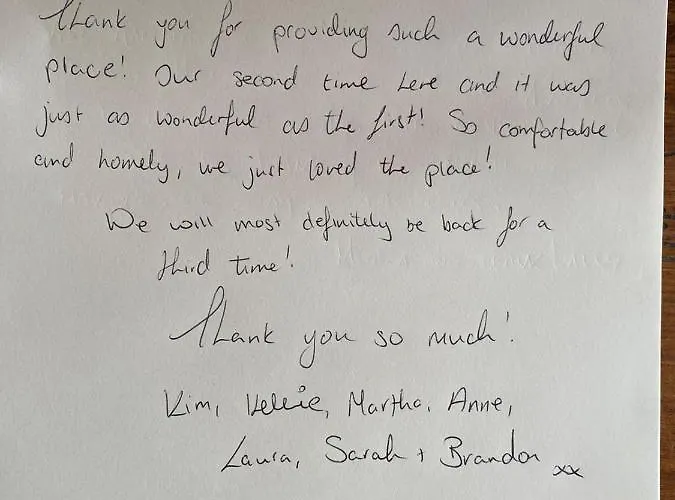 Thank you for providing such a wonderful
place! Our second time here and it was
just as wonderful as the first! So comfortable
and homely, we just loved the place!
We will most definitely be back for a
third time!
Thank you so much!
Kim, Kellie, Martha, Anne,
Laura, Sarah + Brandon xx